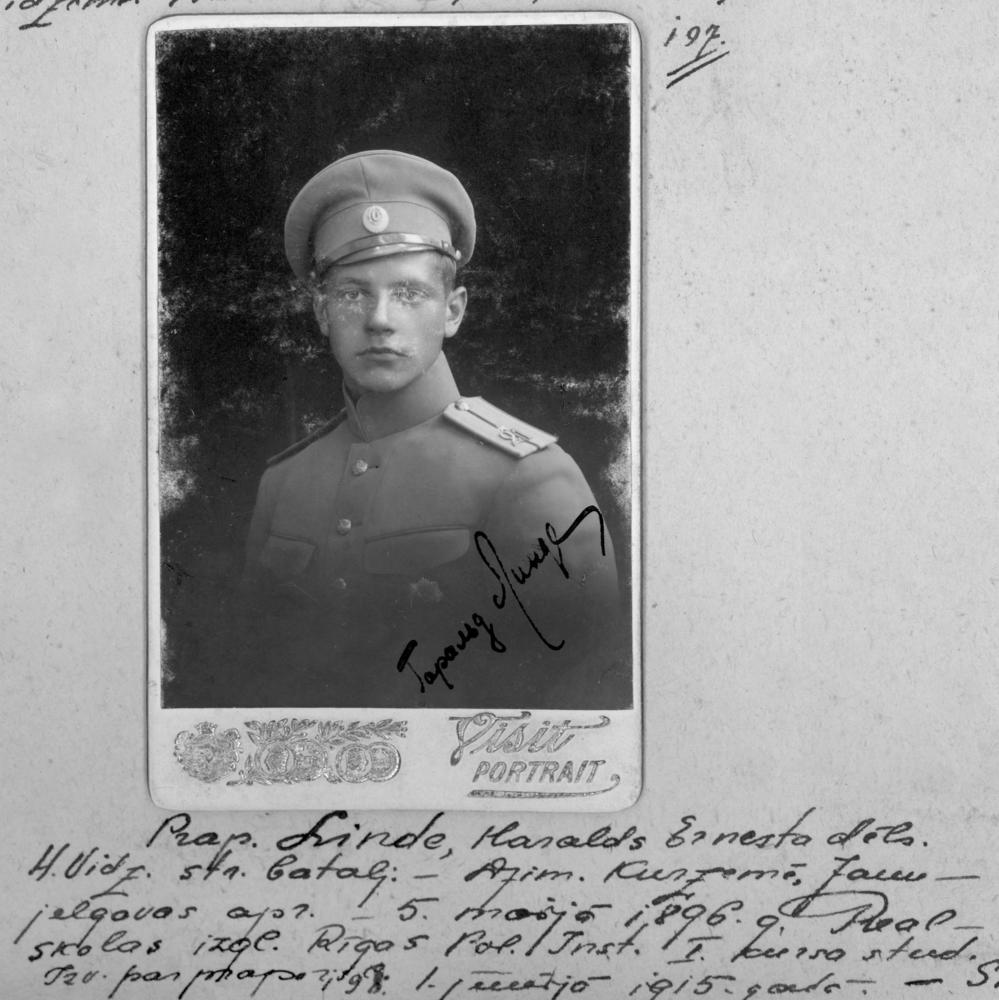 197.
21
Гаральд Линде
Visit
PORTRAIT
Prap. Linde, Haralds Ernesta dēls.
4. Vidz. str. batalj. – Dzim. Kurzemē, Jaun–
jelgavas apr. – 5. martā 1896. g. Real–
skolas izgl. Rīgas Pol. Inst. I. kursa stud.
Izv. par praporšč. 1. janvārī 1915. gadā. –